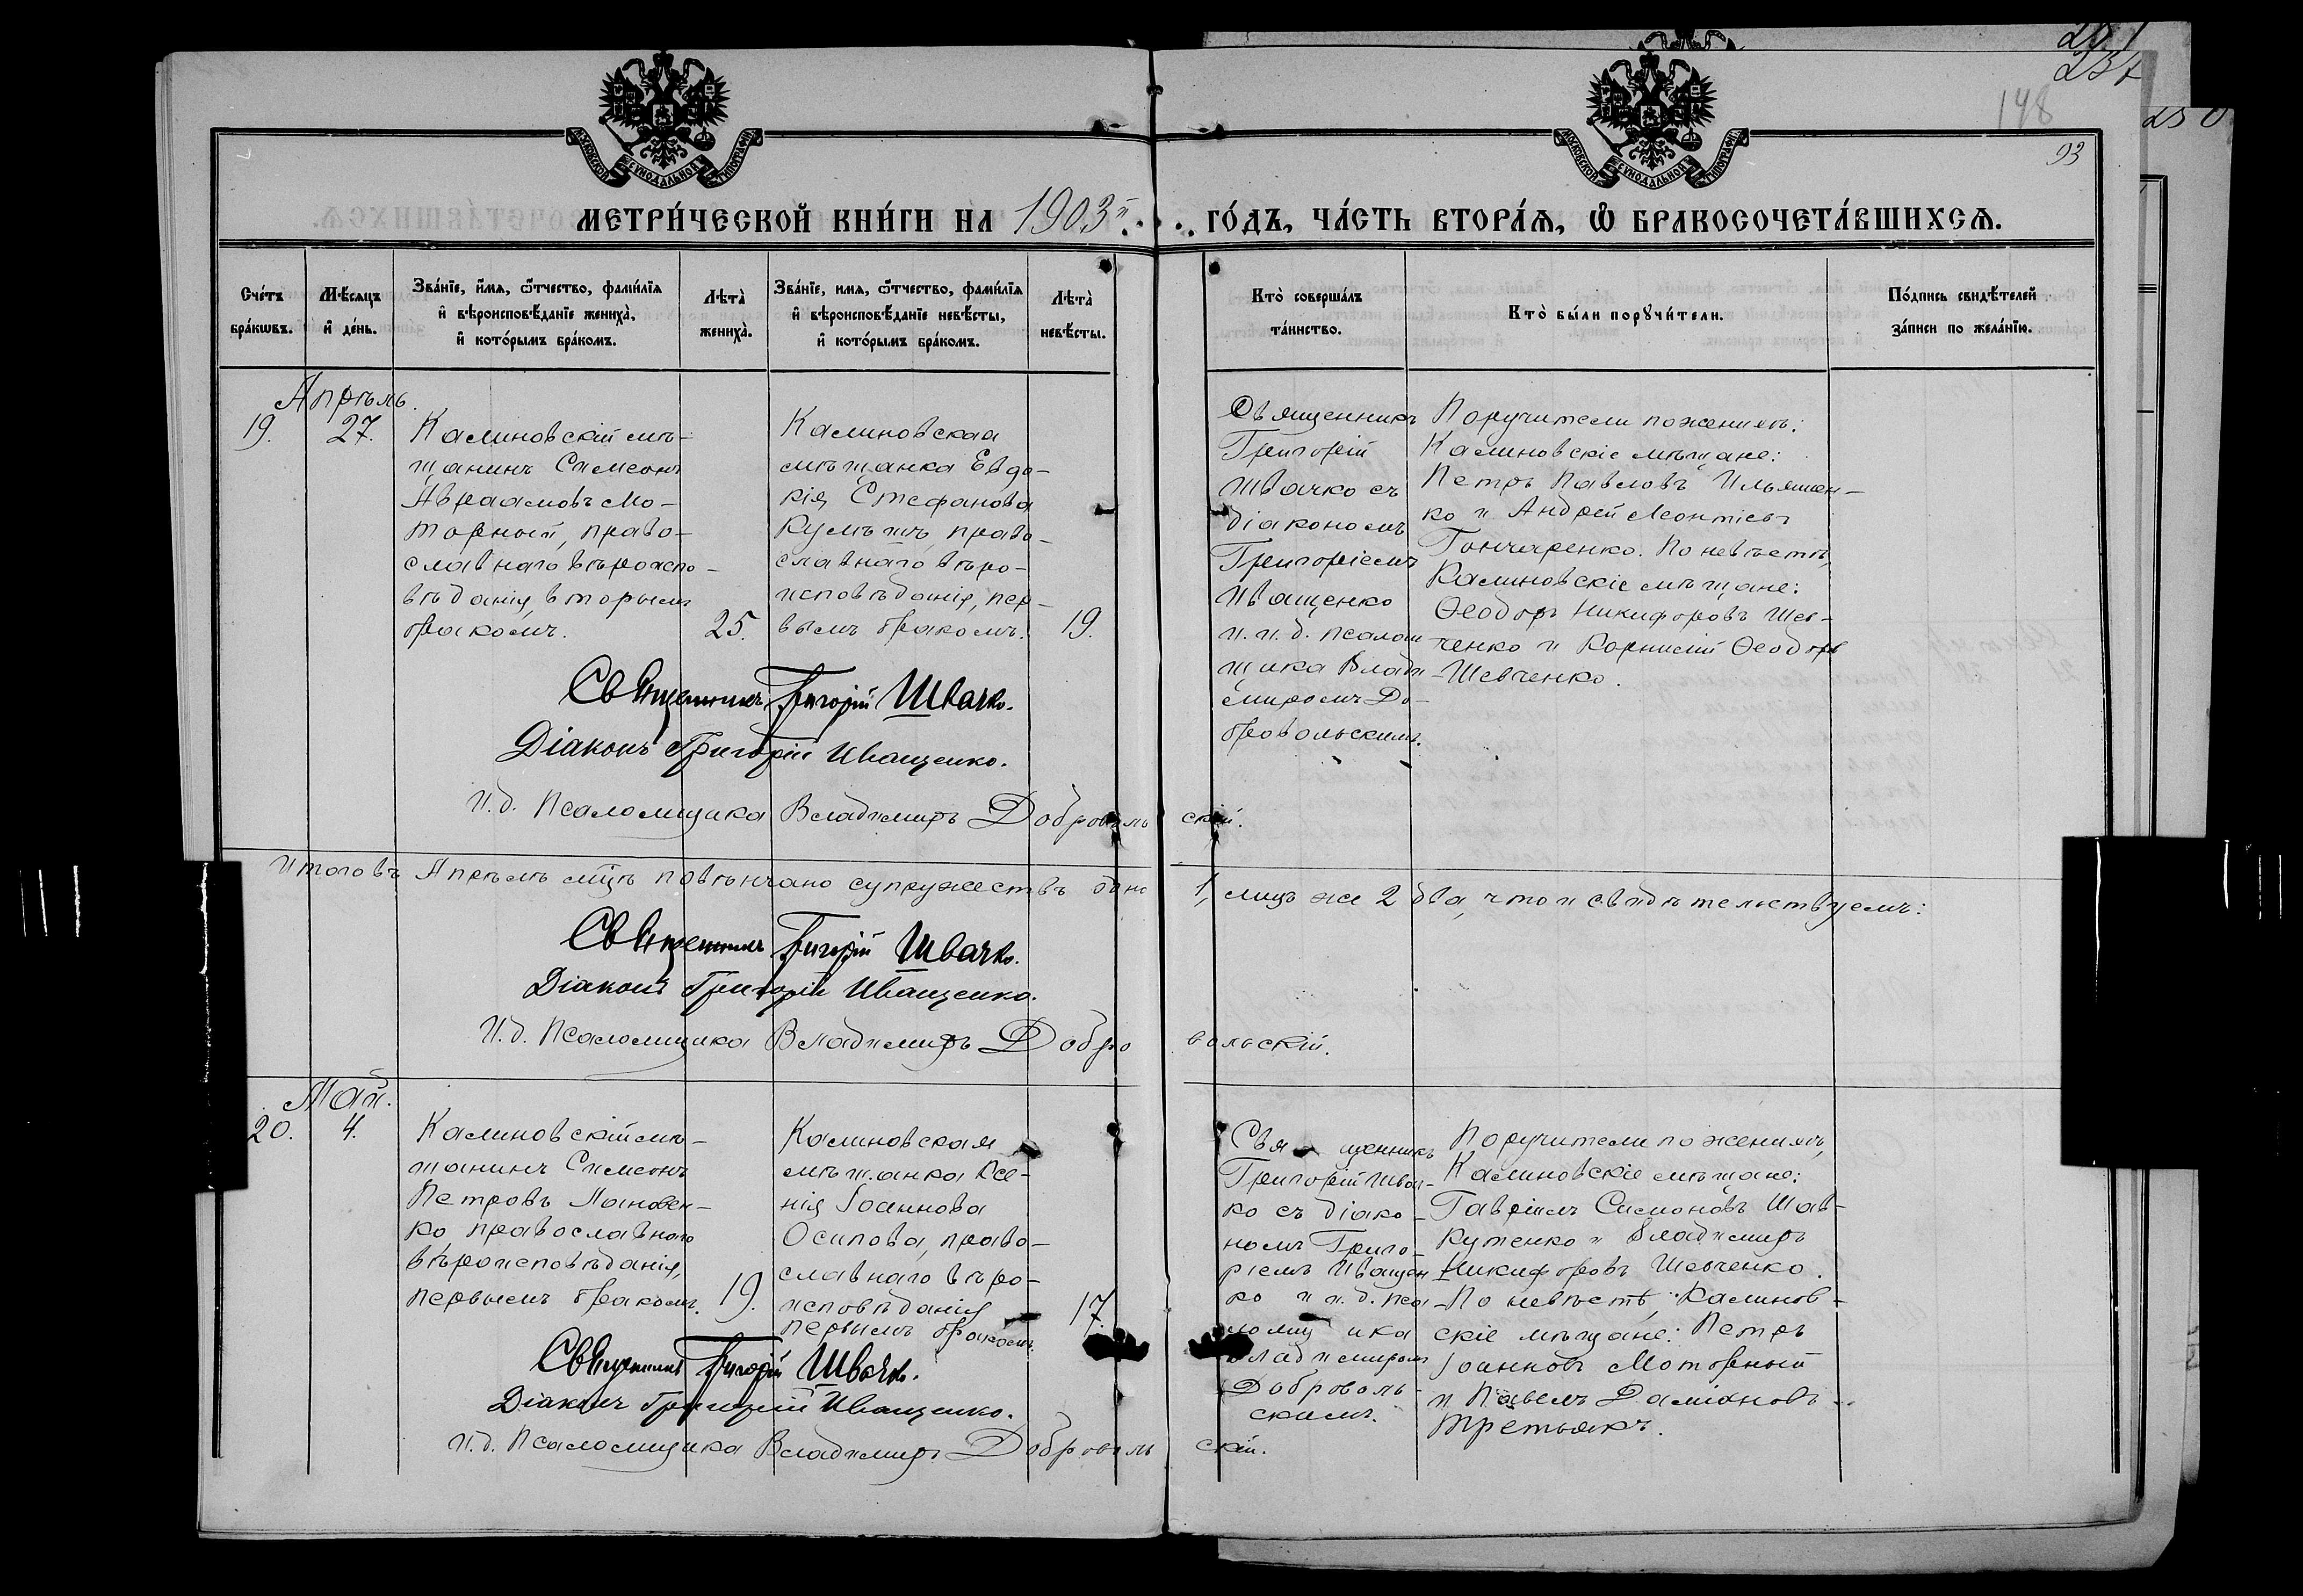 МОСКОВСКОЙ СѴНОДАЛЬНОЙ ТИПОГРАФІИ
МОСКОВСКОЙ СѴНОДАЛЬНОЙ ТИПОГРАФІИ
148
250
93
МЕТРИ́ЧЕСКОЙ КНИ́ГИ НА 1903й ГО́ДЪ, ЧА́СТЬ ВТОРА́Я, Ѡ҆ БРАКОСОЧЕТА́ВШИХСѦ.
Сче́тъ
бра́кѡвъ.
Мѣ́сѧцъ
и҆ де́нь.
Зва́нїе, и҆́мѧ, ѻ҆́тчество, фами́лїѧ
и҆ вѣроисповѣ́данїе жениха̀,
и҆ кото́рымъ бра́комъ.
Лѣта̀
жениха̀.
Зва́нїе, имѧ, ѻ҆́тчество, фами́лїѧ
и҆ вѣроисповѣ́данїе невѣ́сты,
и҆ кото́рымъ бра́комъ.
Лѣта̀
невѣ́сты.
Кто̀ соверша́лъ
та́инство.
Кто̀ бы́ли порꙋчи́тели.
По́дпись свидѣ́телей
за́писи по жела́нїю.
Апрѣль.
19.
27.
Калиновскій мѣ-
щанинъ Симеонъ
Авраамовъ Мо-
торный, право-
славнаго вѣроиспо-
вѣданія, вторымъ
бракомъ.
25.
Калиновская
мѣщанка Евдо-
кія Стефанова
право-
славнаго вѣро-
исповѣданія, пер-
вымъ бракомъ.
19.
Священникъ
Григорій
Швачко съ
діакономъ
Григоріемъ
Иващенко
и и. д. псалом
щика Влади
миромъ До-
бровольскимъ.
Поручители по женихѣ:
Калиновскіе мѣщане:
Петръ Павловъ Ильяшен-
ко и Андрей Леонтіевъ
Гончаренко. По невѣстѣ,
Калиновскіе мѣщане:
Ѳеодоръ Никифоровъ Шев-
ченко и Корнилій Ѳеодоровъ
Шевченко.
Священникъ Григорій Швачко.
Діаконъ Григорій Иващенко.
И. д. Псаломщика Владимиръ Добровольскій.
Итого въ Апрѣлѣ мцѣ повѣнчано супружествъ одно 1, лицъ же 2 два, что и свидѣтельствуемъ:
Священникъ Григорій Швачко.
Діаконъ Григорій Иващенко.
И. д. Псаломщика Владимиръ Добровольскій.
Май.
20.
4.
Калиновскій мѣ-
щанинъ Симеонъ
Петровъ Пановен-
ко, православнаго
вѣроисповѣданія,
первымъ бракомъ.
19.
Калиновская
мѣщанка Ксе-
нія Іоаннова
Осипова, право-
славнаго вѣро-
исповѣданія
первымъ бракомъ.
17.
Священникъ
Григорій Швач-
ко съ діако-
номъ Григо-
ріемъ Иващен
ко и и. д. пса
ломщика
Владимиромъ
Доброволь-
скимъ.
Поручители по женихѣ,
Калиновскіе мѣщане:
Гавріилъ Симоновъ Шав-
кутенко и Владимиръ
Никифоровъ Шевченко.
По невѣстѣ, Калинов-
скіе мѣщане: Петръ
Іоанновъ Моторный
и Павелъ Даміановъ
Третьякъ.
Священникъ Григорій Швачко.
Діаконъ Григорій Иващенко.
И. д. Псаломщика Владимиръ Добровольскій.